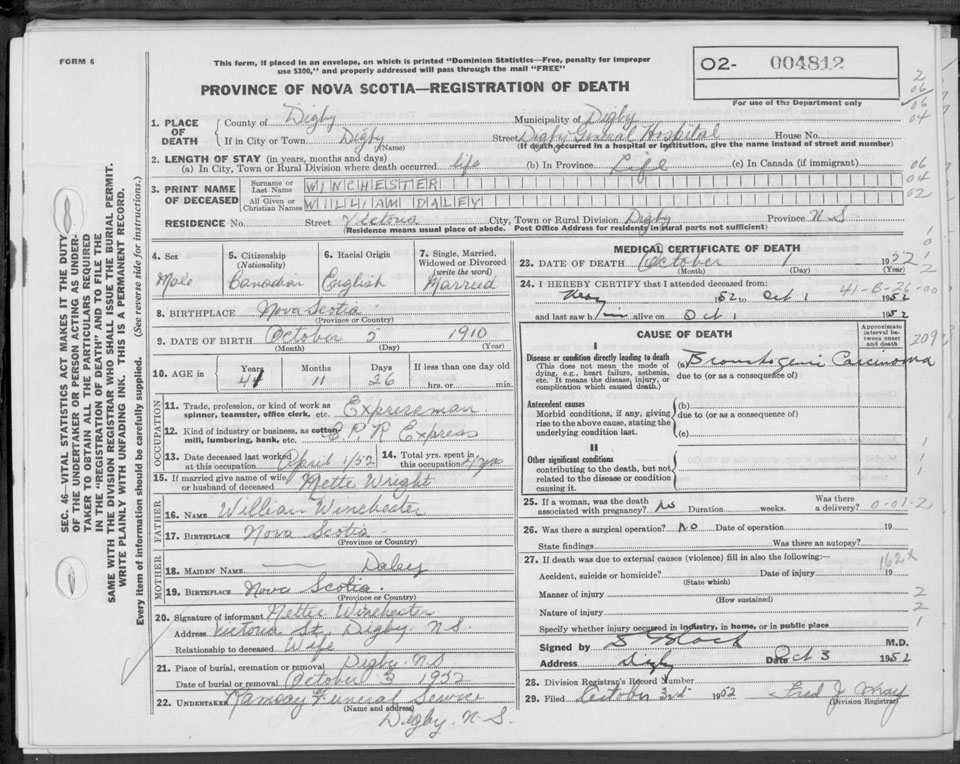 FORM 6
This form, if placed in an envelope, on which is printed "Dominion Statistics—Free, penalty for improper
use $300," and properly addressed will pass through the mail "FREE"
O2- 004812
For use of the Department only
PROVINCE OF NOVA SCOTIA—REGISTRATION OF DEATH
2
06
06
04
1. PLACE OF DEATH
County of Digby Municipality of Digby
If in City or Town Digby (Name) Street Digby General Hospital House No.
(If death occurred in a hospital or institution, give the name instead of street and number)
2. LENGTH OF STAY (in years, months and days)
(a) In City, Town or Rural Division where death occurred life (b) In Province Life (c) In Canada (if immigrant)
06
04
02
3. PRINT NAME OF DECEASED
Surname or Last Name WINCHESTER
All Given or Christian Names WILLIAM DALEY
RESIDENCE No. Street Victoria City, Town or Rural Division Digby Province N.S.
(Residence means usual place of abode. Post Office Address for residents in rural parts not sufficient)
4. Sex
Male
5. Citizenship
(Nationality)
Canadian
6. Racial Origin
English
7. Single, Married,
Widowed or Divorced
(write the word)
Married
8. BIRTHPLACE Nova Scotia
(Province or Country)
9. DATE OF BIRTH October 5 1910
(Month) (Day) (Year)
10. AGE in
Years Months Days If less than one day old
41 11 26 hrs. or min.
OCCUPATION
11. Trade, profession, or kind of work as
spinner, teamster, office clerk, etc. Expressman
12. Kind of industry or business, as cotton
mill, lumbering, bank, etc. C.P.R Express
13. Date deceased last worked
at this occupation April 1/52
14. Total yrs. spent in
this occupation
15. If married give name of wife
or husband of deceased Mette Wright
FATHER
16. NAME William Winchester
17. BIRTHPLACE Nova Scotia
(Province or Country)
MOTHER
18. MAIDEN NAME Daley
19. BIRTHPLACE Nova Scotia.
(Province or Country)
20. Signature of informant Nettie Winchester
Address Victoria St, Digby. N.S.
Relationship to deceased Wife
21. Place of burial, cremation or removal Digby. N.S
Date of burial or removal October 3 1952
22. UNDERTAKER Ramsay Funeral Service
(Name and address)
Digby. N.S.
MEDICAL CERTIFICATE OF DEATH
23. DATE OF DEATH October 1 1952
(Month) (Day) (Year)
24. I HEREBY CERTIFY that I attended deceased from:
41-8-26-00
1952 to Oct 1 1952
and last saw him alive on Oct 1 1952
CAUSE OF DEATH
Approximate
interval between
onset
and death
I
Disease or condition directly leading to death
(This does not mean the mode of
dying, e.g., heart failure, asthenia,
etc. It means the disease, injury, or
complication which caused death.)
(a) Bronchogenic Carcinoma
due to (or as a consequence of)
Antecedent causes
Morbid conditions, if any, giving
rise to the above cause, stating the
underlying condition last.
(b)
due to (or as a consequence of)
(c)
II
Other significant conditions
contributing to the death, but not
related to the disease or condition
causing it.
25. If a woman, was the death
associated with pregnancy? No Duration weeks. Was there
a delivery? 0-01-2
26. Was there a surgical operation? No Date of operation 19
State findings Was there an autopsy?
27. If death was due to external causes (violence) fill in also the following:—
162x
Accident, suicide or homicide? Date of injury 19
(State which)
Manner of injury
(How sustained)
Nature of injury
Specify whether injury occurred in industry, in home, or in public place
Signed by M.D.
Address Digby Date Oct 3 1952
28. Division Registrar's Record Number
29. Filed October 3rd 1952 Fred J
(Division Registrar)
SEC. 46—VITAL STATISTICS ACT MAKES IT THE DUTY
OF THE UNDERTAKER OR PERSON ACTING AS UNDER-
TAKER TO OBTAIN ALL THE PARTICULARS REQUIRED
IN THE "REGISTRATION OF DEATH" AND TO FILE THE
SAME WITH THE DIVISION REGISTRAR WHO SHALL ISSUE THE BURIAL PERMIT.
WRITE PLAINLY WITH UNFADING INK. THIS IS A PERMANENT RECORD.
Every item of information should be carefully supplied. (See reverse side for instructions.)